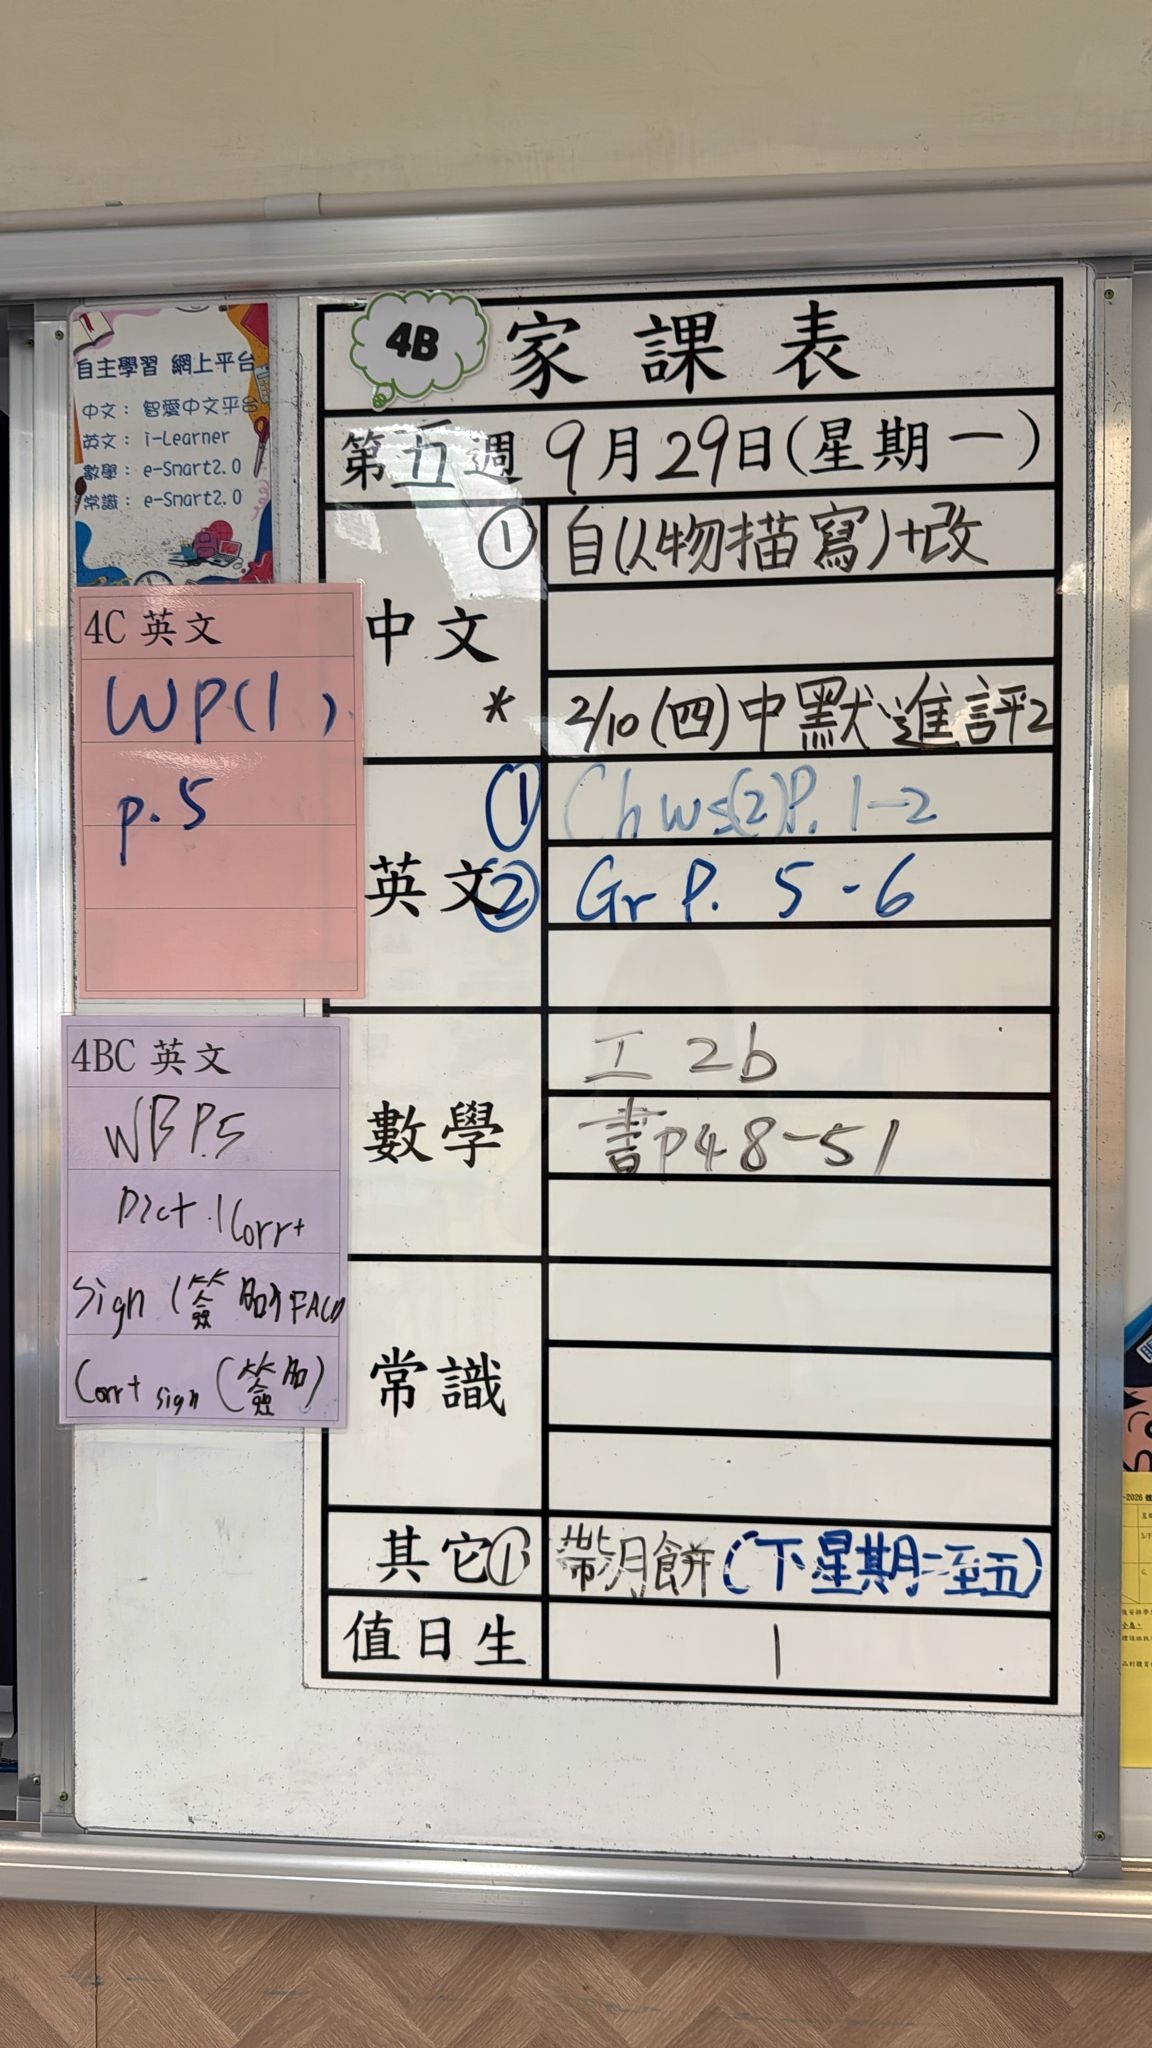 4B
家課表
第五週 9月29日(星期一)
自主學習 網上平台
中文： 智愛中文平台
英文： i-Learner
數學： e-Smart2.0
常識： e-Smart2.0
中文
① 自(人物描寫)+改
* 2/10(四)中默進評2
英文
① Ch ws(2)P. 1-2
② Gr P. 5-6
數學
工 2b
書p48-51
常識
其它① 帶月餅(下星期二至五)
值日生 1
4C 英文
WP(1)
p.5
4BC 英文
WB P.5
Dict.1 Corr+
Sign (簽
Corr+ sign (簽